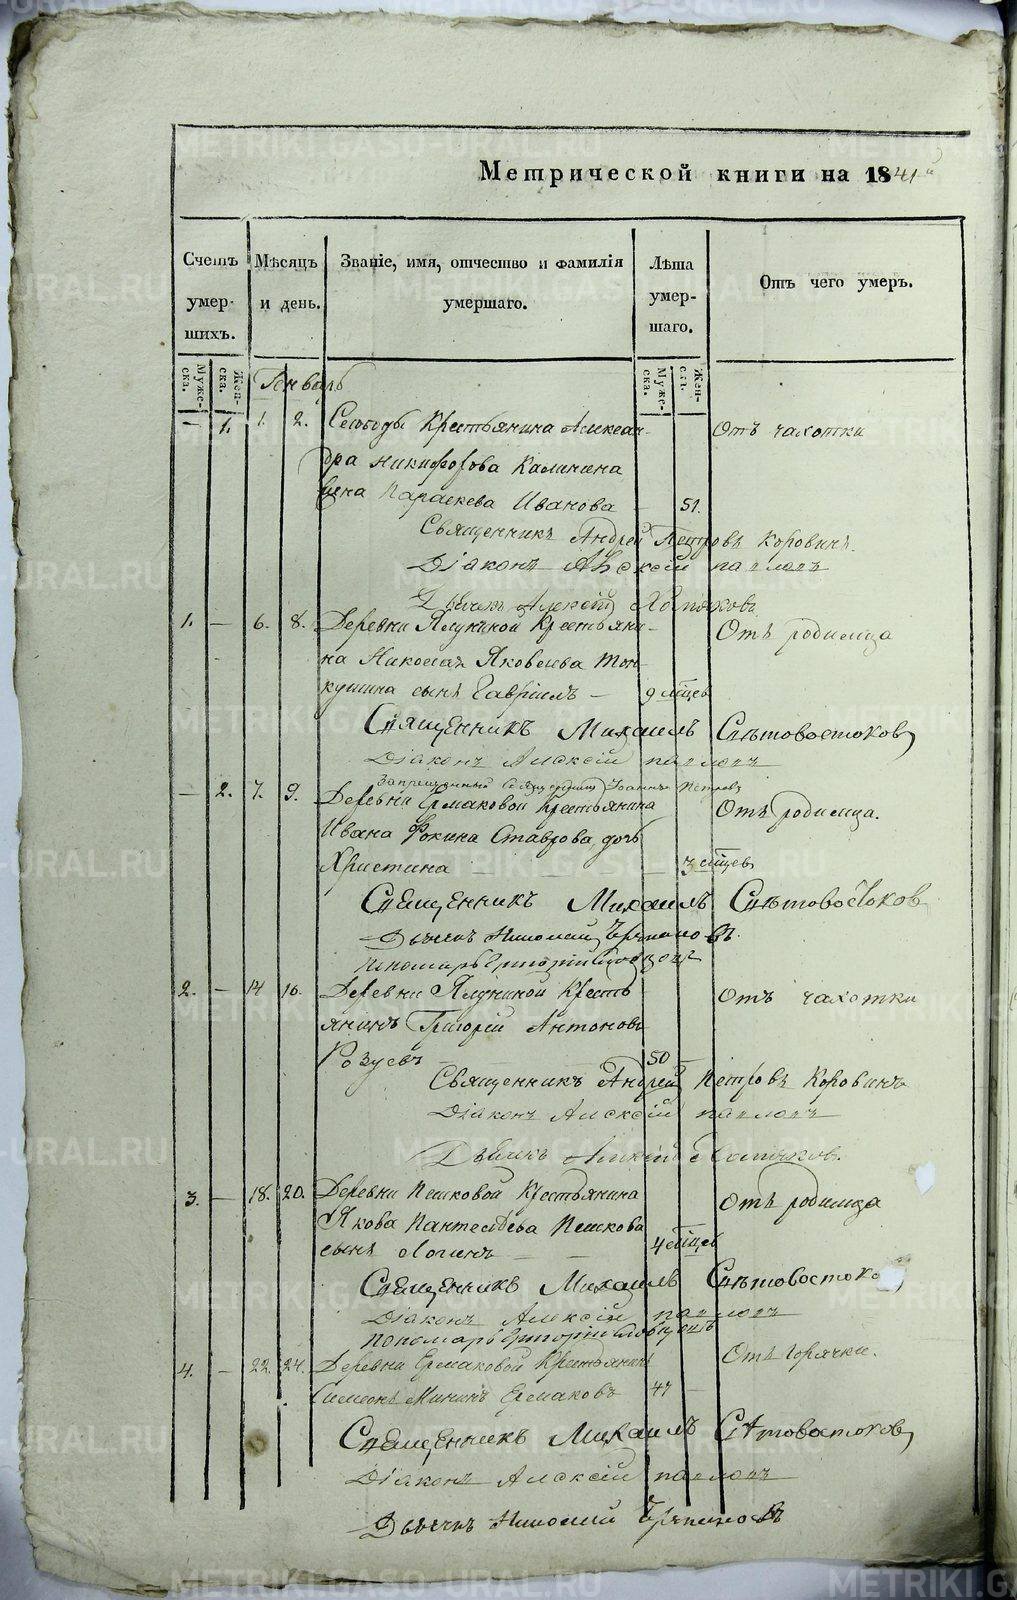 Метрической книги на 1841
Счетъ умерших. Мѣсяцъ и день. Званіе, имя, отчество и фамилія умершаго. Лѣта умершаго. Отъ чего умеръ.
Муже-ска. Жен-ска. Муже-ска. Жен-ска.
Генварь
— 1. 1. 2. Слободы Крестьянина Алексан-
дра Никифорова Калинина
жена Параскева Иванова — 51. Отъ чахотки
Священникъ Андрей Петровъ Коровинъ.
Діаконъ Алексій
Дьячекъ Алексій Хомяковъ
1. — 6. 8. Деревни Ялуниной Крестьяни-
на Николая Яковлева Тон-
кушина сынъ Гавріилъ — 9 мѣсцев Отъ родимца
Священникъ Михаилъ Свѣтовостоковъ
Діаконъ Алексій
Запрещенный Священникъ Іоаннъ Петровъ
— 2. 7. 9. Деревни Ермаковой Крестьянина
Ивана Фокина Ставрова дочь
Христина — 3 мѣсцев Отъ родимца.
Священникъ Михаилъ Свѣтовостоков
Дьячекъ Николай
Пономарь Григорій
2. — 14 16. Деревни Ялуниной Кресть
янинъ Григорій Антоновъ
Розуевъ — 50 — Отъ чахотки
Священникъ Андрей Петровъ Коровинъ
Діаконъ Алексій
Дьячекъ Алексій Хомяков.
3. — 18. 20. Деревни Пешковой Крестьянина
Якова Пантелѣева Пешкова
сынъ Логинъ — 4 мѣсцев Отъ родимца
Священникъ Михаилъ Свѣтовостоко
Діаконъ Алексій
Пономарь Григорій
4. — 22. 24. Деревни Ермаковой Крестьянинъ
Симеонъ Мининъ Ермаковъ 47 — Отъ горячки.
Священникъ Михаилъ Свѣтовостоковъ
Діаконъ Алексій
Дьячекъ Николай
METRIKI.GASO-URAL.RU